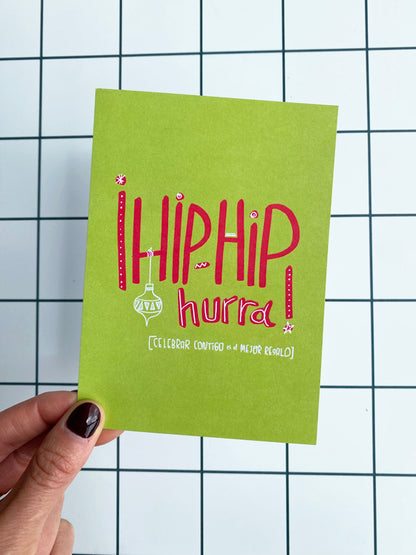 ¡HIP-HIP
hurra!
[CELEBRAR CONTIGO es el MEJOR REGALO]